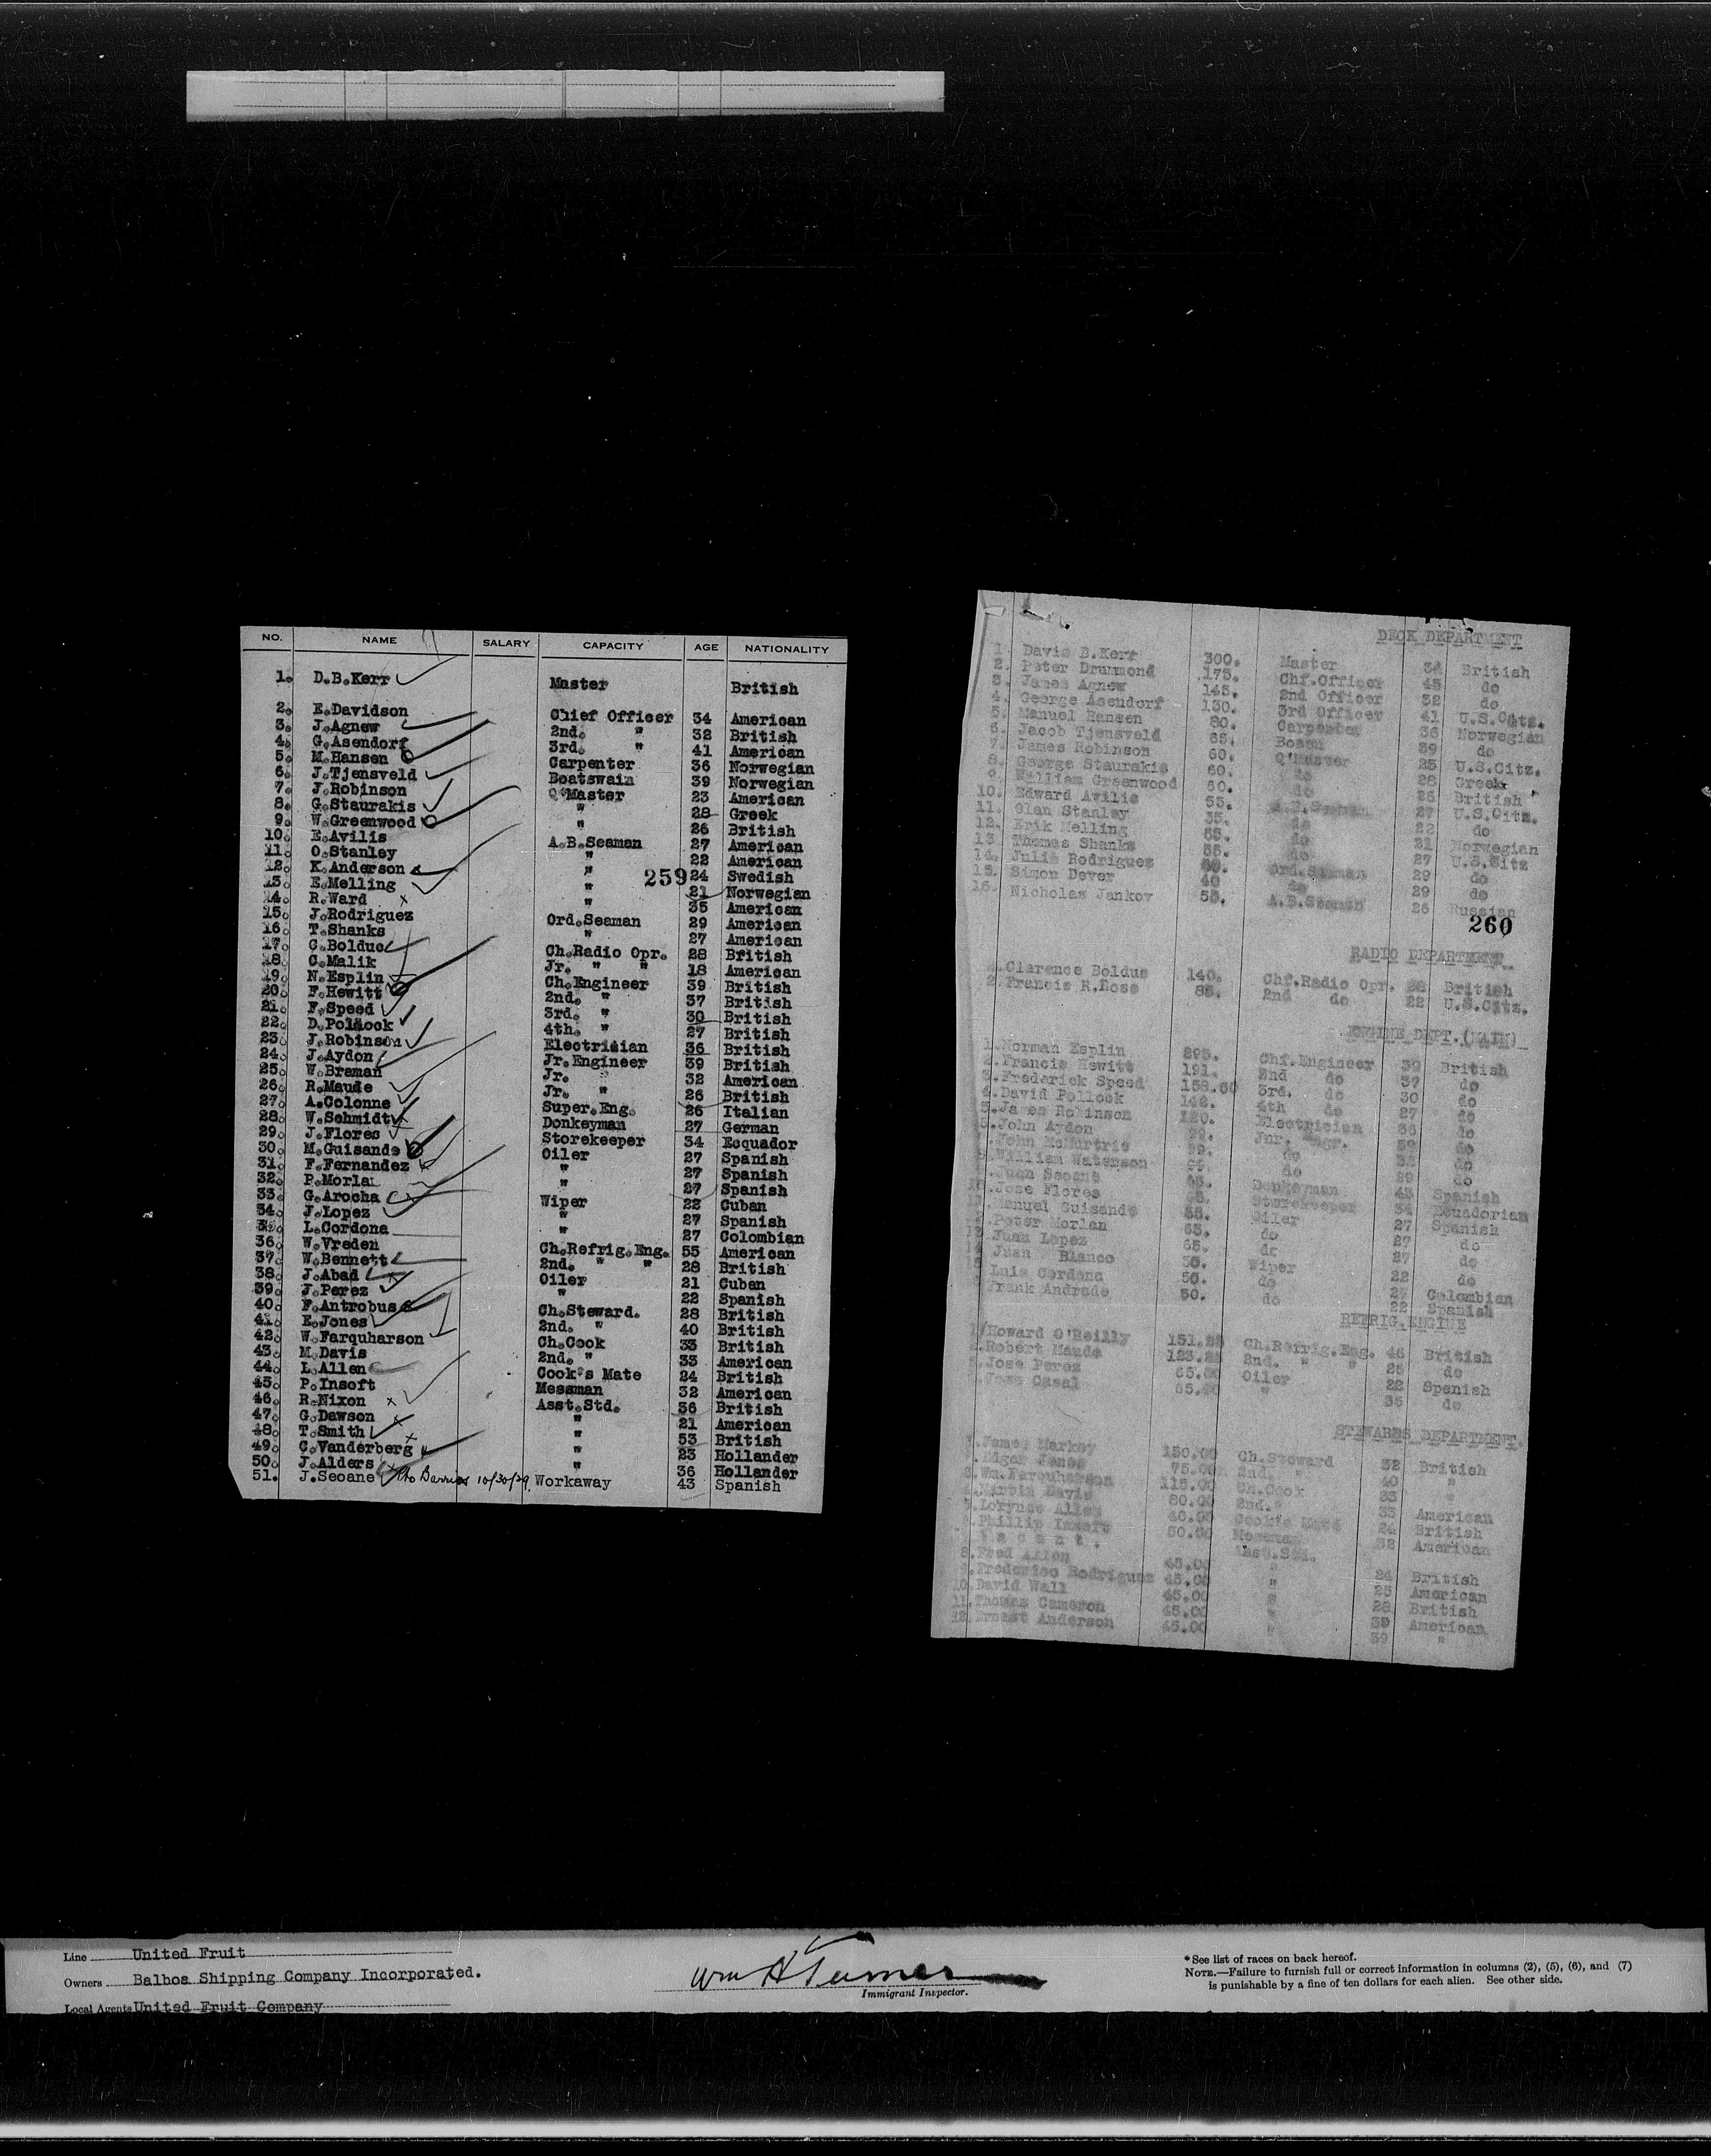 NO. NAME SALARY CAPACITY AGE NATIONALITY
1. D.B.Kerr Master British
2. E.Davidson Chief Officer 34 American
3. J.Agnew 2nd. " 32 British
4. G.Asendorf 3rd. " 41 American
5. M.Hansen Carpenter 36 Norwegian
6. J.Tjensveld Boatswain 39 Norwegian
7. J.Robinson Q'Master 23 American
8. G.Staurakis " 28 Greek
9. W.Greenwood " 26 British
10. E.Avilis A.B.Seaman 27 American
11. O.Stanley " 22 American
12. K.Anderson " 24 Swedish
259
13. E.Melling " 21 Norwegian
14. R.Ward " 35 American
15. J.Rodriguez Ord.Seaman 29 American
16. T.Shanks " 27 American
17. C.Bolduc Ch.Radio Opr. 28 British
18. C.Malik Jr. " " 18 American
19. N.Esplin Ch.Engineer 39 British
20. F.Hewitt 2nd. " 37 British
21. F.Speed 3rd. " 30 British
22. D.Pollock 4th. " 27 British
23. J.Robinson Electrician 36 British
24. J.Aydon Jr.Engineer 39 British
25. W.Braman Jr. " 32 American
26. R.Maude Jr. " 26 British
27. A.Colonne Super.Eng. 26 Italian
28. W.Schmidt Donkeyman 27 German
29. J.Flores Storekeeper 34 Ecquador
30. M.Guisande Oiler 27 Spanish
31. F.Fernandez " 27 Spanish
32. P.Morlan " 27 Spanish
33. G.Arocha Wiper 22 Cuban
34. J.Lopez " 27 Spanish
35. L.Cordona " 27 Colombian
36. W.Vreden Ch.Refrig.Eng. 55 American
37. W.Bennett 2nd. " " 28 British
38. J.Abad Oiler 21 Cuban
39. J.Perez " 22 Spanish
40. F.Antrobus Ch.Steward. 28 British
41. E.Jones 2nd. " 40 British
42. W.Farquharson Ch.Cook 33 British
43. M.Davis 2nd. " 33 American
44. L.Allen Cook's Mate 24 British
45. P.Insoft Messman 32 American
46. R.Nixon Asst.Std. 36 British
47. G.Dawson " 21 American
48. T.Smith " 53 British
49. C.Vanderberg " 23 Hollander
50. J.Alders " 36 Hollander
51. J.Seoane Pto Barrios 10/30/29 Workaway 43 Spanish
DECK DEPARTMENT
1. David B.Kerr 300. Master 34 British
2. Peter Drummond 175. Chf.Officer 43 do
3. James Agnew 145. 2nd Officer 32 do
4. George Asendorf 130. 3rd Officer 41 U.S.Citz.
5. Manuel Hansen 80. Carpenter 36 Norwegian
6. Jacob Tjensveld 65. Bosun 39 do
7. James Robinson 60. Q'Master 23 U.S.Citz.
8. George Staurakis 60. do 28 Greek
9. William Greenwood 60. do 26 British
10. Edward Avilis 55. A.B.Seaman 27 U.S.Citz.
11. Olan Stanley 55. do 22 do
12. Erik Melling 55. do 21 Norwegian
13. Thomas Shanks 55. do 27 U.S.Citz
14. Julio Rodriguez Ord.Seaman 29 do
15. Simon Dever 40 do 29 do
16. Nicholas Jankov 55. A.B.Seaman 26 Russian
260
RADIO DEPARTMENT
1. Clarence Bolduc 140. Chf.Radio Opr. 28 British
2. Francis R.Ross 85. 2nd do 22 U.S.Citz.
ENGINE DEPT.(MAIN)
1. Norman Esplin 295. Chf.Engineer 39 British
2. Francis Hewitt 191. 2nd do 37 do
3. Frederick Speed 158.60 3rd. do 30 do
4. David Pollock 142. 4th do 27 do
5. James Robinson 120. Electrician 36 do
John Aydon 99. Jnr. Engr. 39 do
John McMurtrie 99. do do
William Waterson 99. do 29 do
Juan Seoane 65. Donkeyman 43 Spanish
Jose Flores Storekeeper 34 Ecuadorian
Manuel Guisande Oiler 27 Spanish
Peter Morlan 65. do 27 do
Juan Lopez 65. do 27 do
Juan Blanco 50. Wiper 22 do
Luis Cordona 50. do 27 Colombian
Frank Andrade 50. do 22 Spanish
REFRIG.ENGINE
1. Howard O'Reilly 151.25 Ch.Refrig.Eng. 46 British
2. Robert Maude 123.25 2nd. " " 26 do
3. Jose Perez 65.00 Oiler 22 Spanish
Jose Casal 65.00 " 35 do
STEWARDS DEPARTMENT.
1. James Markey 150.00 Ch.Steward 32 British
Edgar Jones 75.00 2nd. " 40 "
3. Wm.Farquharson 115.00 Ch.Cook 33 "
Martin Davis 80.00 2nd. " 33 American
Allen 40.00 Cook's Mate 24 British
Phillip Insoft 50.00 Messman 32 American
Vacant. Asst.Std.
8. Fred Allen 45.00 " 24 British
9. Frederico Rodriguez 45.00 " 25 American
10. David Wall 45.00 " 28 British
11. Thomas Cameron 45.00 " 39 American
12. Ernest Anderson 45.00 " 39 "
Line United Fruit
Owners Balboa Shipping Company Incorporated.
Local Agents United Fruit Company
Wm H Turner
Immigrant Inspector.
* See list of races on back hereof.
NOTE.—Failure to furnish full or correct information in columns (2), (5), (6), and (7)
is punishable by a fine of ten dollars for each alien. See other side.